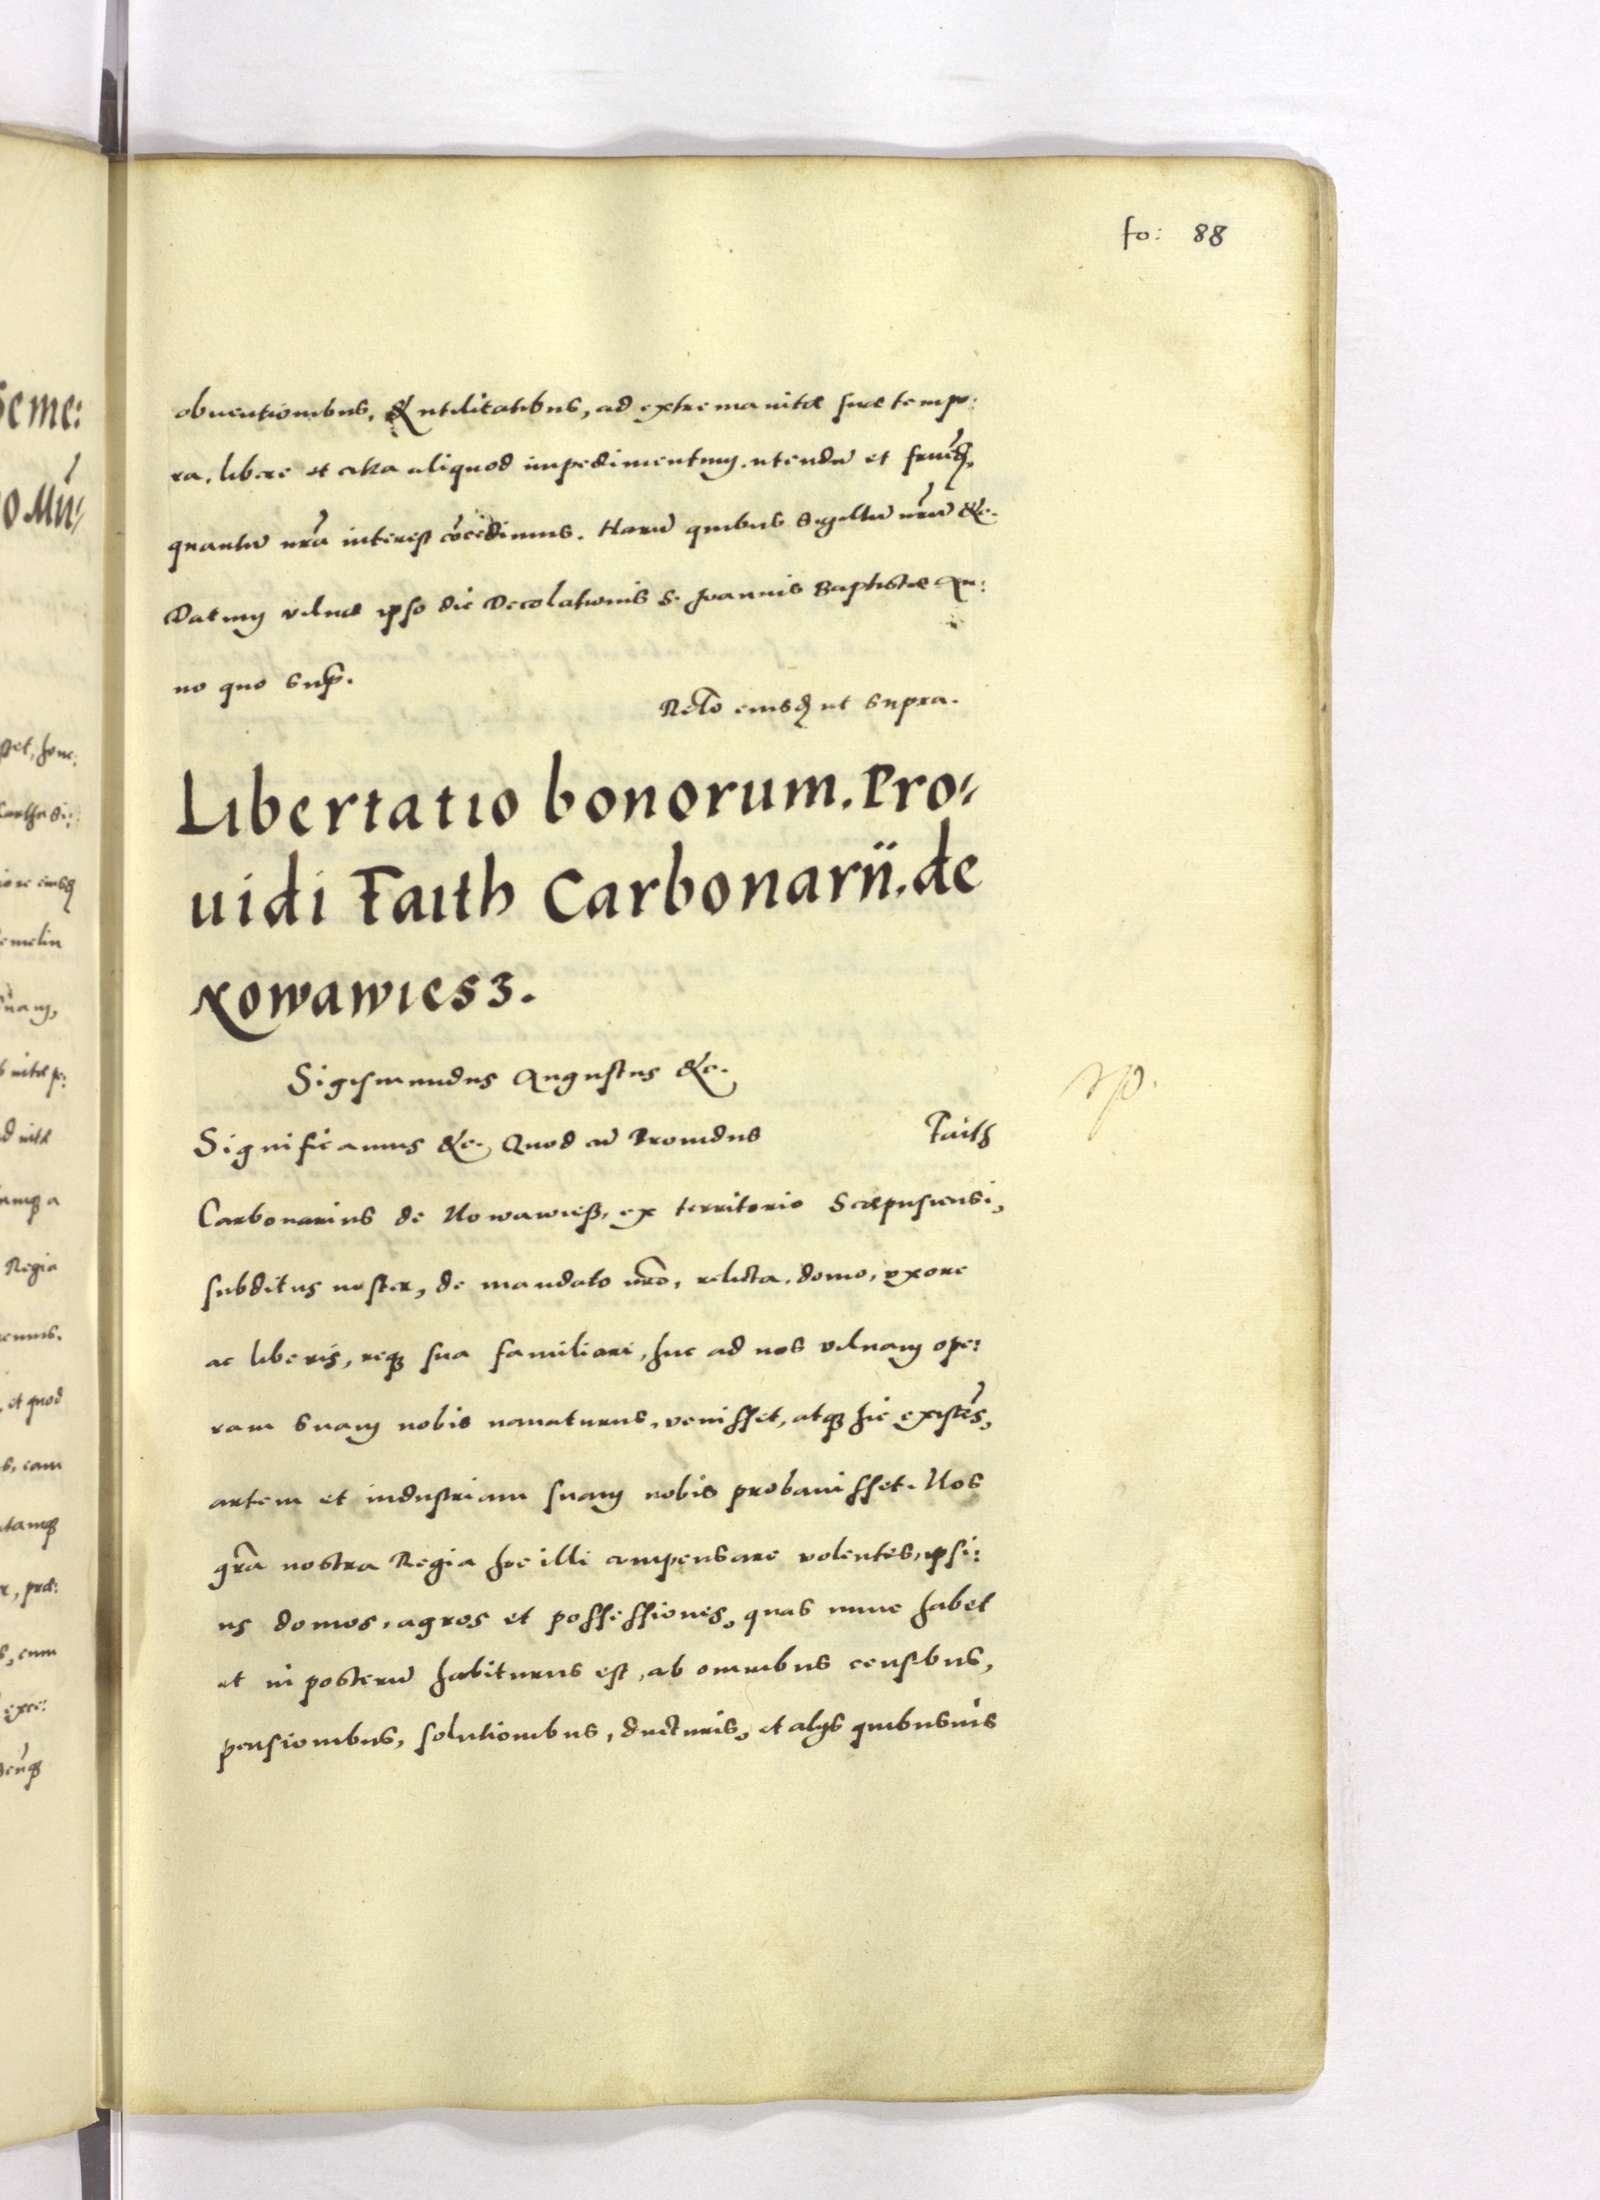 fo: 88
obuentionibus, & utilitatibus, ad extrema uitæ suæ tempo:
ra, libere et citra aliquod impedimentum, utendū et fruēd.
quantū nrā interest cōcedimus. Harū quibus sigillū nrūm &c.
Datum Vilnæ ipso die Decolationis S. Joannis Baptistæ An:
no quo sup.
Relō eiusd ut supra.
Libertatio bonorum. Pro⸗
uidi Faith Carbonarii. de
Nowawiesz.
Sigismundus Augustus &c.
Significamus &c. Quod cū Prouidus Faith
Carbonarius de Nowawiesz, ex territorio Scæpusiensi,
subditus noster, de mandato nrō, relicta, domo, vxore
ac liberis, req sua familiari, huc ad nos Vilnam ope:
ram suam nobis nauaturus, venisset, atq hic existēs,
artem et industriam suam nobis probauisset. Nos
grā nostra Regia hoc illi compensare volentes, ipsi:
us domos, agros et possessiones, quas nunc habet
et in posterū habiturus est, ab omnibus censibus,
pensionibus, solutionibus, ducturis, et alijs quibusuis